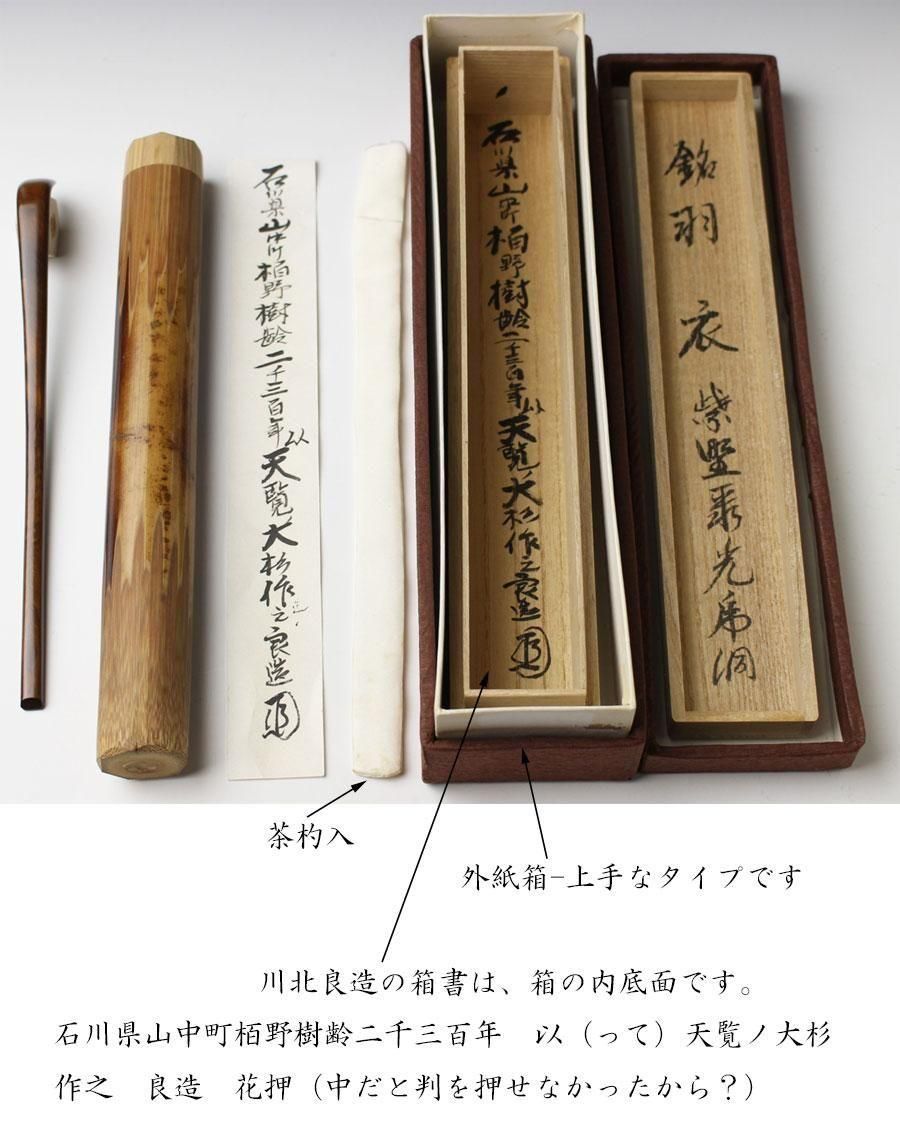 石川県山中町栢野樹齢二千三百年以天覧大杉作之良造
石川県山中町栢野樹齢二千三百年以天覧ノ大杉作之良造
銘羽衣紫野
茶杓入
外紙箱-上手なタイプです
川北良造の箱書は、箱の内底面です。
石川県山中町栢野樹齢二千三百年　以（って）天覧ノ大杉
作之　良造　花押（中だと判を押せなかったから？）